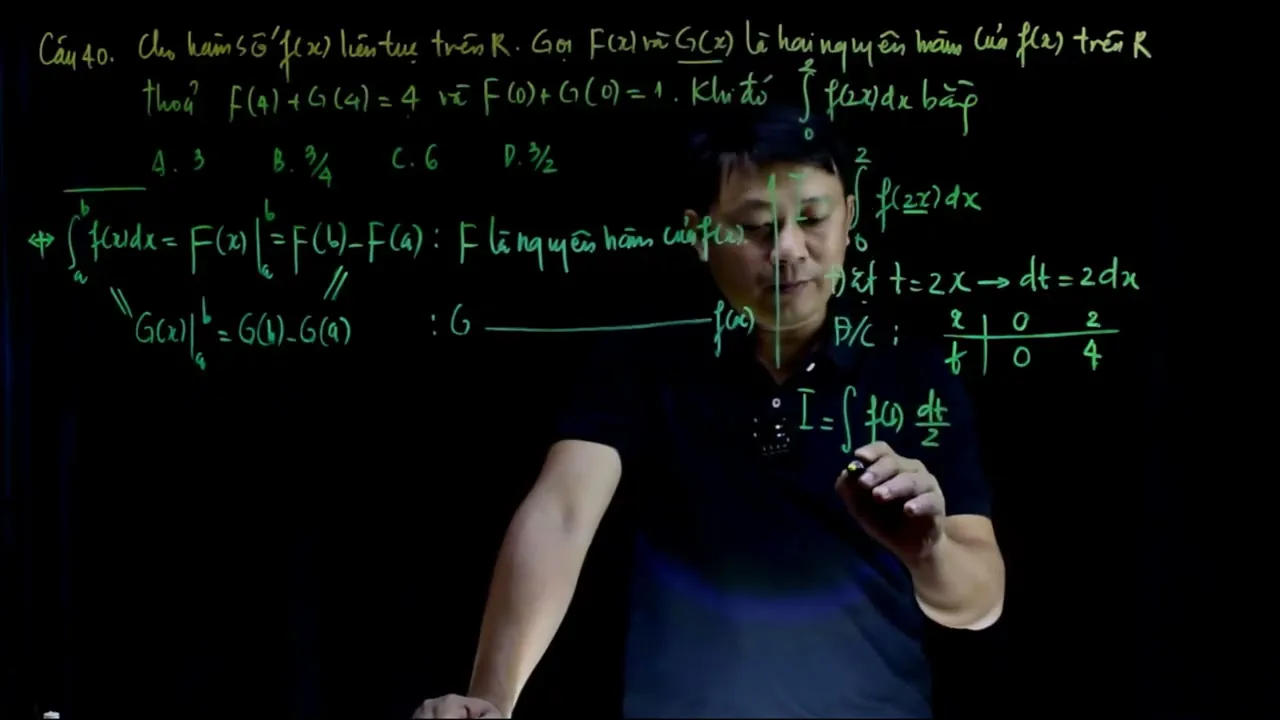 Câu 40. Cho hàm số f(x) liên tục trên R. Gọi F(x) và G(x) là hai nguyên hàm của f(x) trên R
thoả F(4) + G(4) = 4 và F(0) + G(0) = 1. Khi đó ∫₀² f(2x)dx bằng
A. 3 B. 3/4 C. 6 D. 3/2
⇔ ∫ₐᵇ f(x)dx = F(x)|ₐᵇ = F(b) - F(a) : F là nguyên hàm của f(x)
G(x)|ₐᵇ = G(b) - G(a) : G ——— f(x)
∫₀² f(2x)dx
Đặt t = 2x → dt = 2dx
Đ/C : x | 0 2
t | 0 4
I = ∫ f(t) dt/2